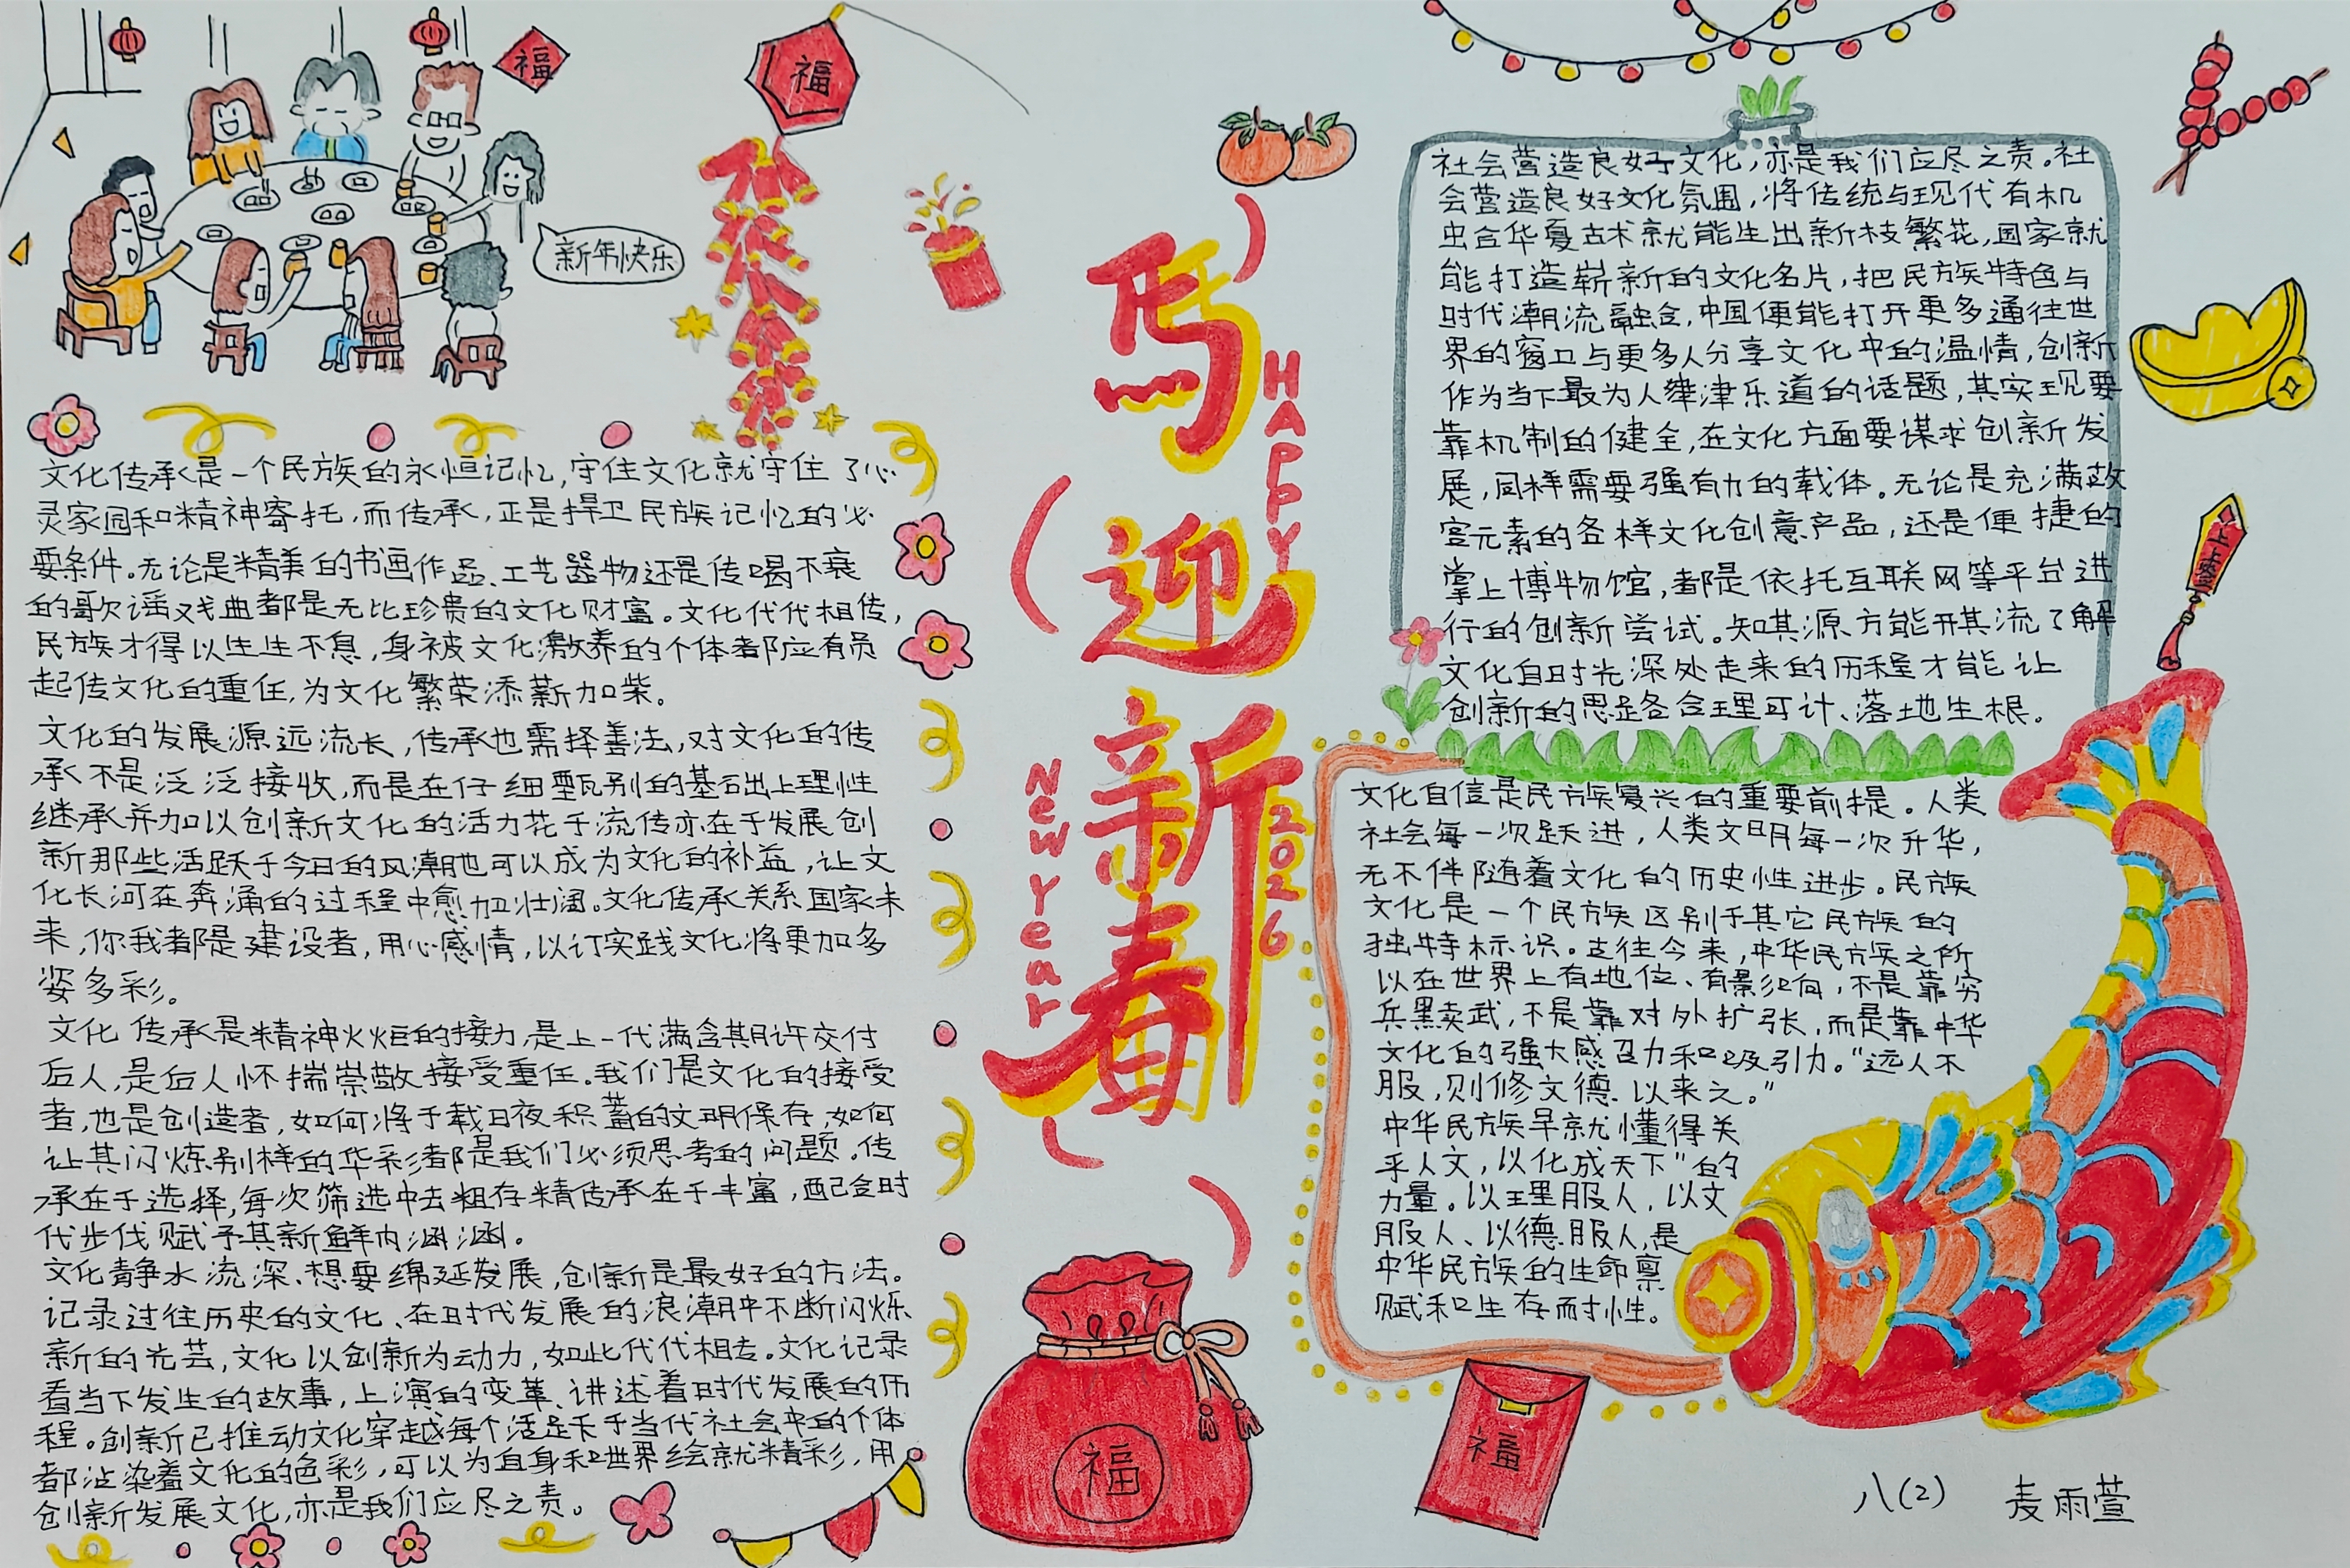 福
福
新年快乐
文化传承是一个民族的永恒记忆,守住文化就守住了心
灵家园和精神寄托,而传承,正是捍卫民族记忆的必
要条件。无论是精美的书画作品、工艺器物还是传唱不衰
的歌谣戏曲都是无比珍贵的文化财富。文化代代相传,
民族才得以生生不息,身被文化激养的个体都应有员
起传文化的重任,为文化繁荣添薪加柴。
文化的发展源远流长,传承也需择善法,对文化的传
承不是泛泛接收,而是在仔细甄别的基础上理性
继承并加以创新文化的活力花于流传亦在于发展创
新那些活跃于今日的风潮也可以成为文化的补益,让文
化长河在奔涌的过程中愈加壮阔。文化传承关系国家未
来,你我都是建设者,用心感情,以订实践文化将更加多
姿多彩。
文化传承是精神火炬的接力,是上一代满含期许交付
后人,是后人怀揣崇敬接受重任。我们是文化的接受
者,也是创造者,如何将千载日夜积蓄的文明保存,如何
让其闪炼别样的华彩都是我们必须思考的问题。传
承在于选择,每次筛选中去粗存精传承在于丰富,配合时
代步伐赋予其新鲜内涵涵。
文化静水流深、想要绵延发展,创新是最好的方法。
记录过往历史的文化、在时代发展的浪潮中不断闪烁
新的光芸,文化以创新为动力,如此代代相传。文化记录
着当下发生的故事,上演的变革、讲述着时代发展的历
程。创新已推动文化穿越每个活足于当代社会中的个体
都沾染着文化的色彩,可以为自身和世界绘就精彩,用
创新发展文化,亦是我们应尽之责。
马
迎
新
春
HAPPY
New Year
2026
福
社会营造良好文化,亦是我们应尽之责。社
会营造良好文化氛围,将传统与现代有机
虫合华夏古术就能生出新枝繁花,国家就
能打造崭新的文化名片,把民族特色与
时代潮流融合,中国便能打开更多通往世
界的窗卫与更多人分享文化中的温情,创新
作为当下最为人津津乐道的话题,其实现要
靠机制的健全,在文化方面要谋求创新发
展,同样需要强有力的载体。无论是充满故
宫元素的各样文化创意产品,还是便捷的
掌上博物馆,都是依托互联网等平台进
行的创新尝试。知其源方能开其流了解
文化自时光深处走来的历程才能让
创新的思路合理可计、落地生根。
文化自信是民族复兴的重要前提。人类
社会每一次跃进,人类文明每一次升华,
无不伴随着文化的历史性进步。民族
文化是一个民族区别于其它民族的
独特标识。古往今来,中华民族之所
以在世界上有地位、有影响,不是靠穷
兵黩武,不是靠对外扩张,而是靠中华
文化的强大感召力和吸引力。"远人不
服,则修文德以来之。"
中华民族早就懂得关
乎人文,以化成天下"的
力量。以理服人,以文
服人、以德服人,是
中华民族的生命禀
赋和生存耐性。
上上签
福
八(2) 麦雨萱